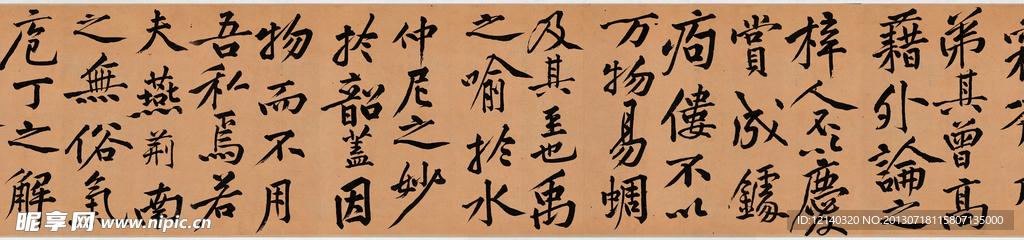 弟其曾高
藉外論之
梓人不以慶
賞成鐻
痀僂不以
万物易蜩
及其至也禹
之喻扵水
仲尼之妙
扵韶蓋因
物而不用
吾私焉若
夫燕荊南
之無俗氣
庖丁之解
昵享网 www.nipic.cn
ID:12140320 NO:20130718115807135000